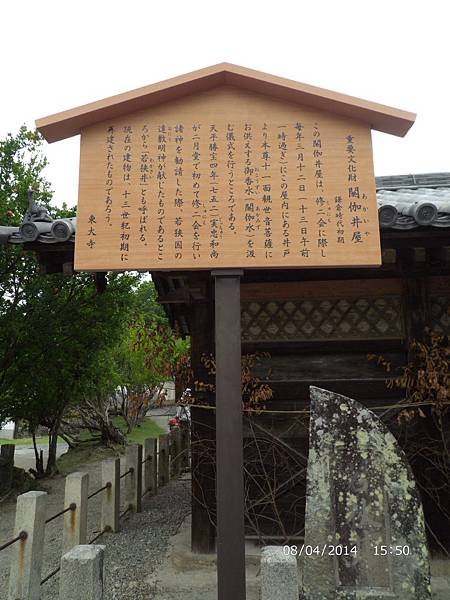 重要文化財 閼伽井屋
あかいや
鎌倉時代初期
この閼伽井屋は、修二会に際し
しゅにえ
毎年三月十二日（十三日午前
一時過ぎ）にこの屋内にある井戸
より本尊十一面観世音菩薩に
お供えする御香水（閼伽水）を汲
おこうずい
あかみず
む儀式を行うところである。
天平勝宝四年（七五二）実忠和尚
が二月堂で初めて修二会を行い
しゅにえ
諸神を勧請した際、若狭国の
遠敷明神が献じたものであるとこ
おにゅう
ろから「若狭井」とも呼ばれる。
わかさい
現在の建物は、十三世紀初期に
再建されたものであろう。
東大寺
08/04/2014 15:50